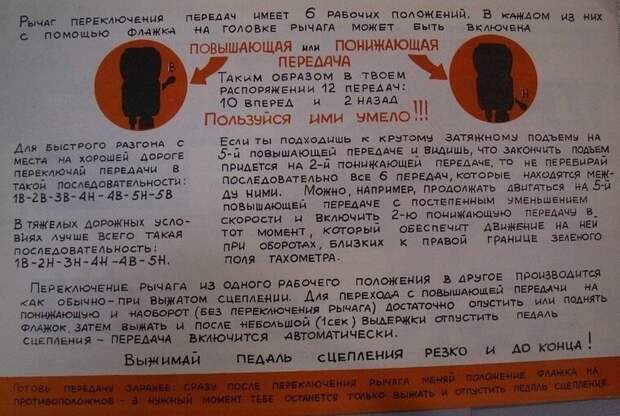 Рычаг переключения передач имеет 6 рабочих положений. В каждом из них
с помощью флажка на головке рычага может быть включена
повышающая или понижающая
передача
В
Н
Таким образом в твоем
распоряжении 12 передач:
10 вперед и 2 назад
Пользуйся ими умело!!!
Для быстрого разгона с
места на хорошей дороге
переключай передачи в
такой последовательности:
1В-2В-3В-4Н-4В-5Н-5В
В тяжелых дорожных усло-
виях лучше всего такая
последовательность:
1В-2Н-3Н-4Н-4В-5Н.
Если ты подходишь к крутому затяжному подъему на
5-й повышающей передаче и видишь, что закончить подъем
придется на 2-й понижающей передаче, то не перебирай
последовательно все 6 передач, которые находятся меж-
ду ними. Можно, например, продолжать двигаться на 5-й
повышающей передаче с постепенным уменьшением
скорости и включить 2-ю понижающую передачу в
тот момент, который обеспечит движение на ней
при оборотах, близких к правой границе зеленого
поля тахометра.
Переключение рычага из одного рабочего положения в другое производится
как обычно-при выжатом сцеплении. Для перехода с повышающей передачи на
понижающую и наоборот (без переключения рычага) достаточно опустить или поднять
флажок, затем выжать и после небольшой (1сек) выдержки отпустить педаль
сцепления - передача включится автоматически.
Выжимай педаль сцепления резко и до конца!
Готовь передачу заранее: сразу после переключения рычага меняй положение флажка на
противоположное - в нужный момент тебе останется только выжать и отпустить педаль сцепления.